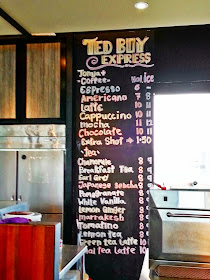 TED BOY
EXPRESS
Coffee Hot ice
Espresso 6 -
Americano 7 8
Latte 10 11
Cappuccino 10 11
Mocha 10 11
Chocolate 10 11
Extra Shot 1.50
Tea
Chamomile 8 9
Breakfast Tea 8 9
Earl Grey 8 9
Japanese Sencha 8 9
Pomegranate 8 9
White Vanilla 8 9
Lemon Ginger 8 9
Marrakesh 8 9
Lemon tea 8 9
Green tea latte 10
Tea latte 10